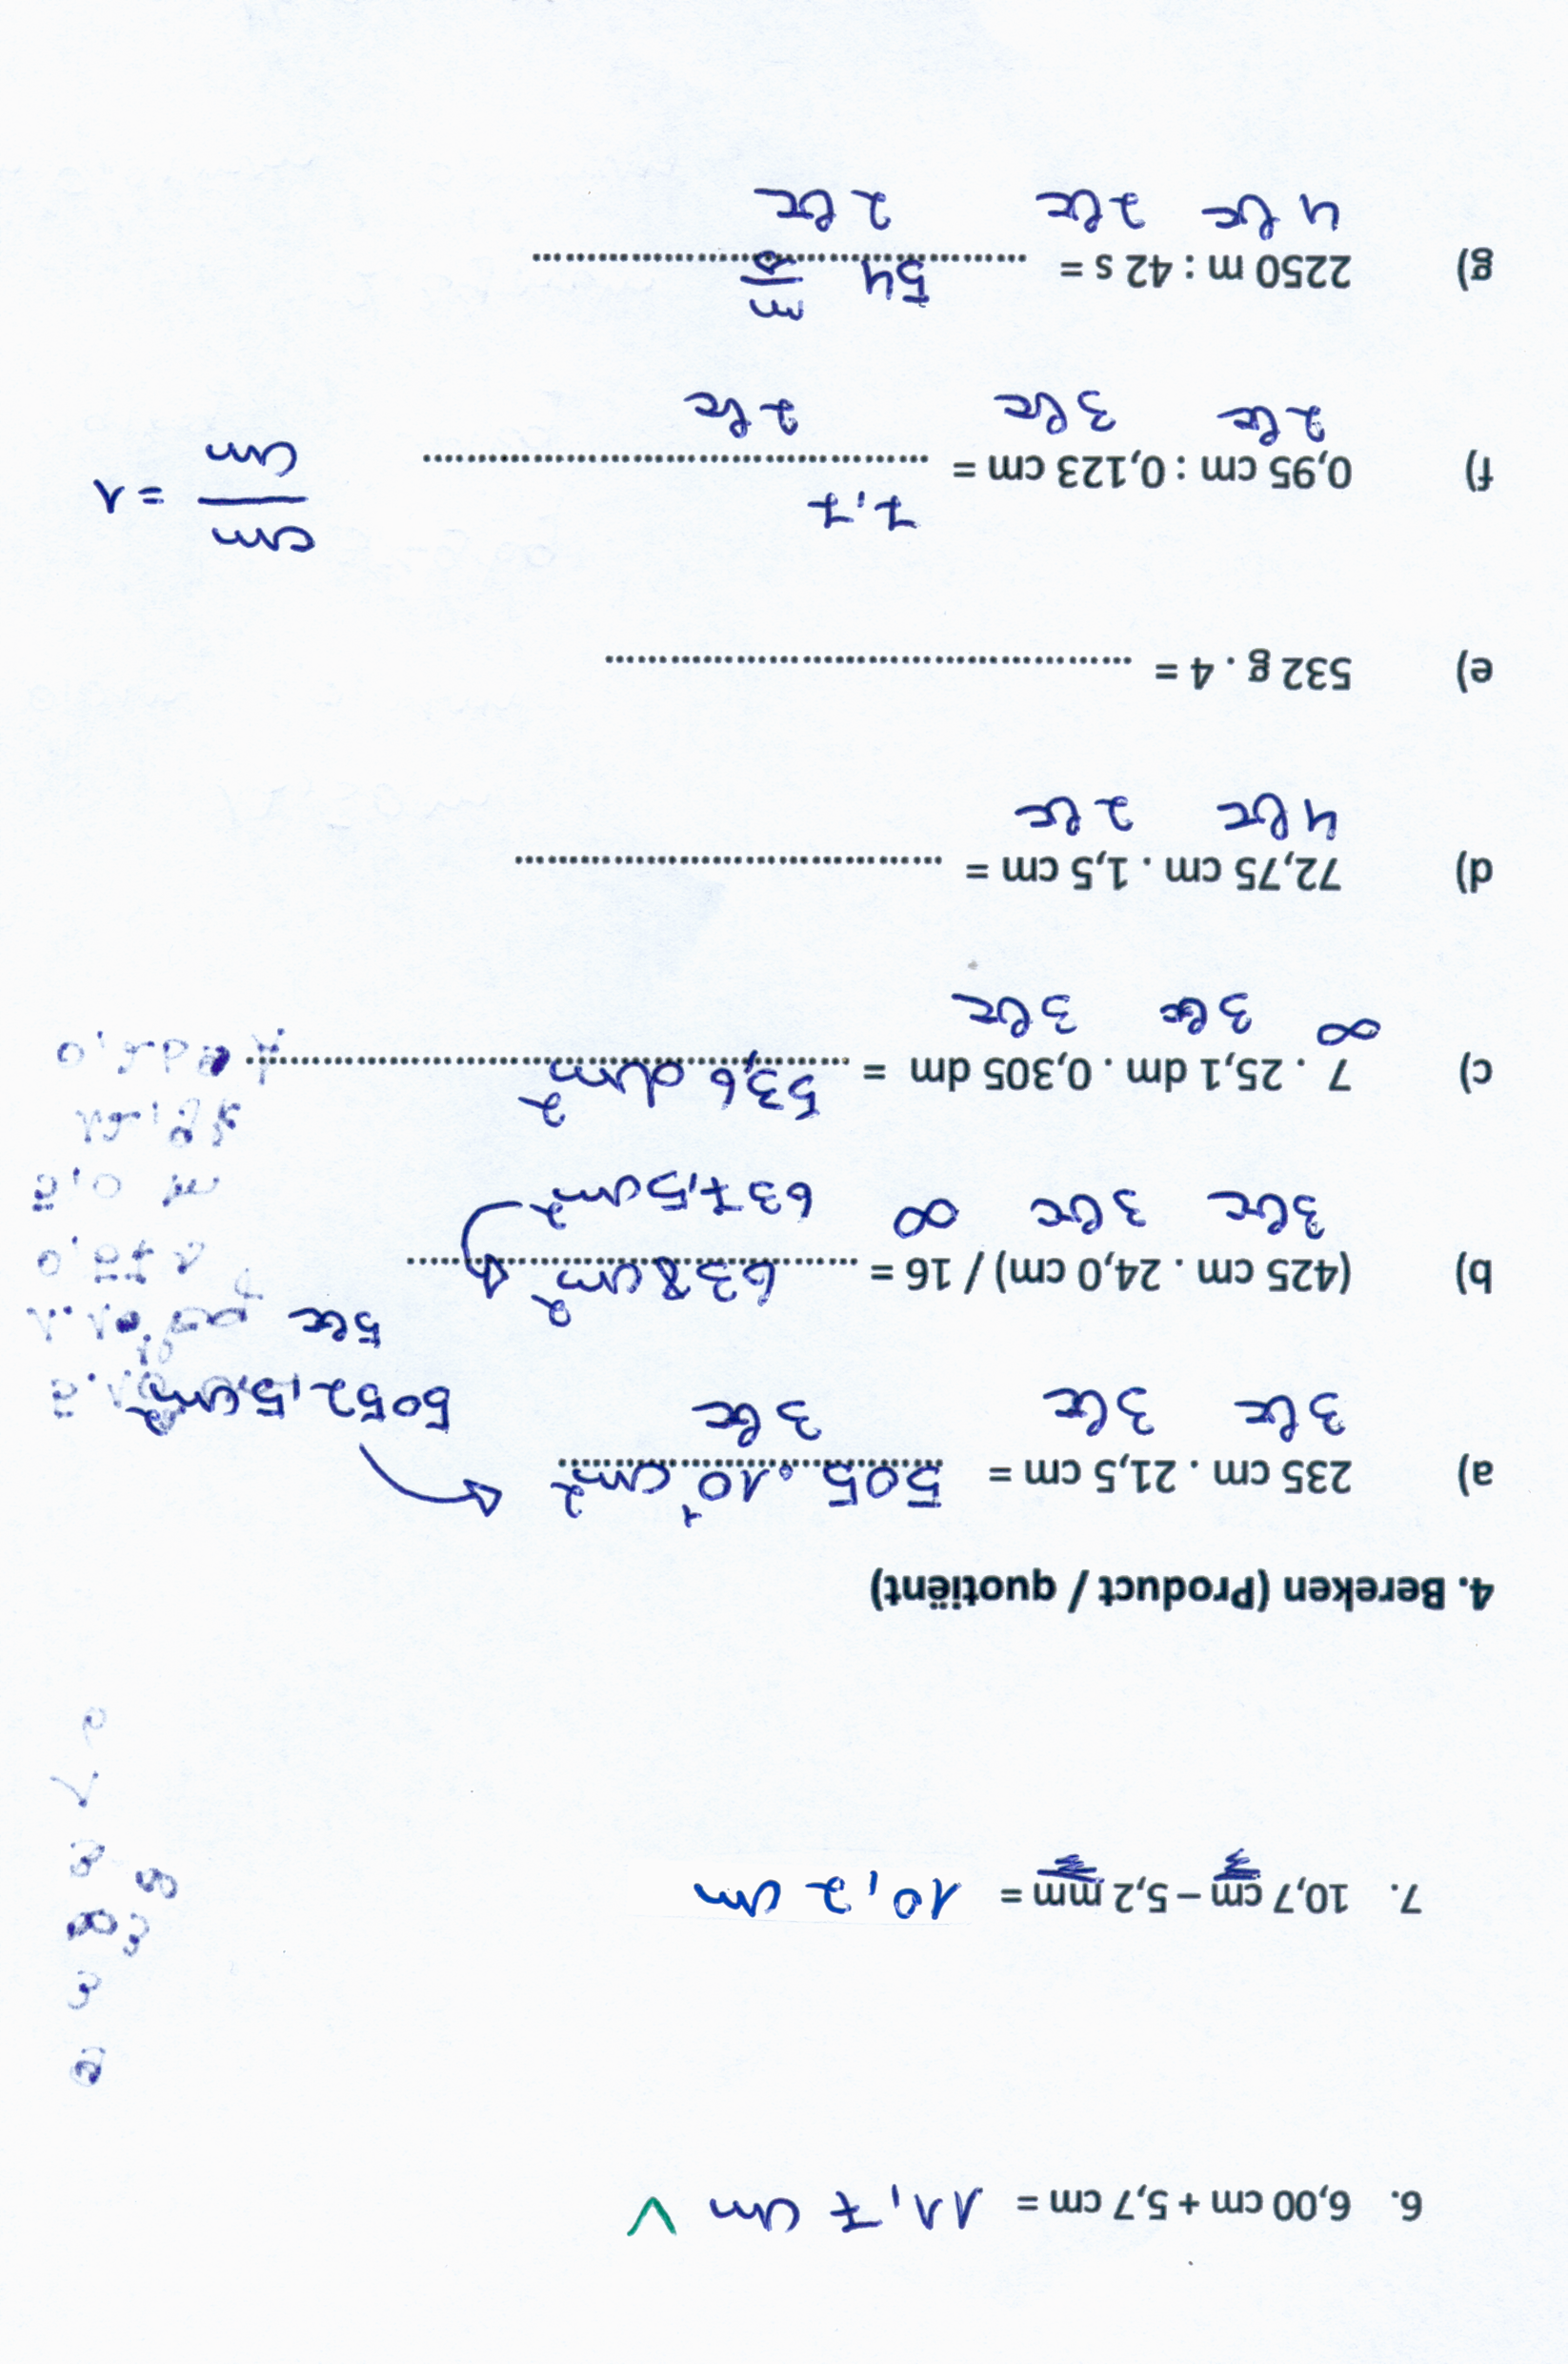 6. 6,00 cm + 5,7 cm = 11,7 cm V
7. 10,7 cm – 5,2 mm = 10,2 cm
4. Bereken (Product / quotiënt)
a) 235 cm . 21,5 cm = 505.10¹ cm²
3 bc 3 bc 3 bc 5052,5 cm²
5 bc
b) (425 cm . 24,0 cm) / 16 = 638 cm²
3 bc 3 bc ∞ 637,5 cm²
c) 7 . 25,1 dm . 0,305 dm = 53,6 dm²
∞ 3 bc 3 bc
d) 72,75 cm . 1,5 cm =
4 bc 2 bc
e) 532 g . 4 =
f) 0,95 cm : 0,123 cm = 7,7 cm/cm = 1
2 bc 3 bc 2 bc
g) 2250 m : 42 s = 54 m/s
4 bc 2 bc 2 bc